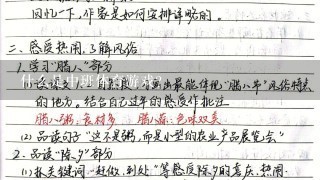 回忆一下,作家是如何安排详略的。
二、感受热闹,了解风俗
1.学习"腊八"部分
最能体现"腊八节"风俗特点
的地方。结合自己过年的感受作批注
腊八粥:食材多 腊八蒜:色味双美
(2)品读句子"这不是粥,而是小型的农业产品展览会"
2.品读"除夕"部分
(1)抓关键词 赶做、到处"等感受除夕的喜庆、热闹.
什么是中班体育游戏?